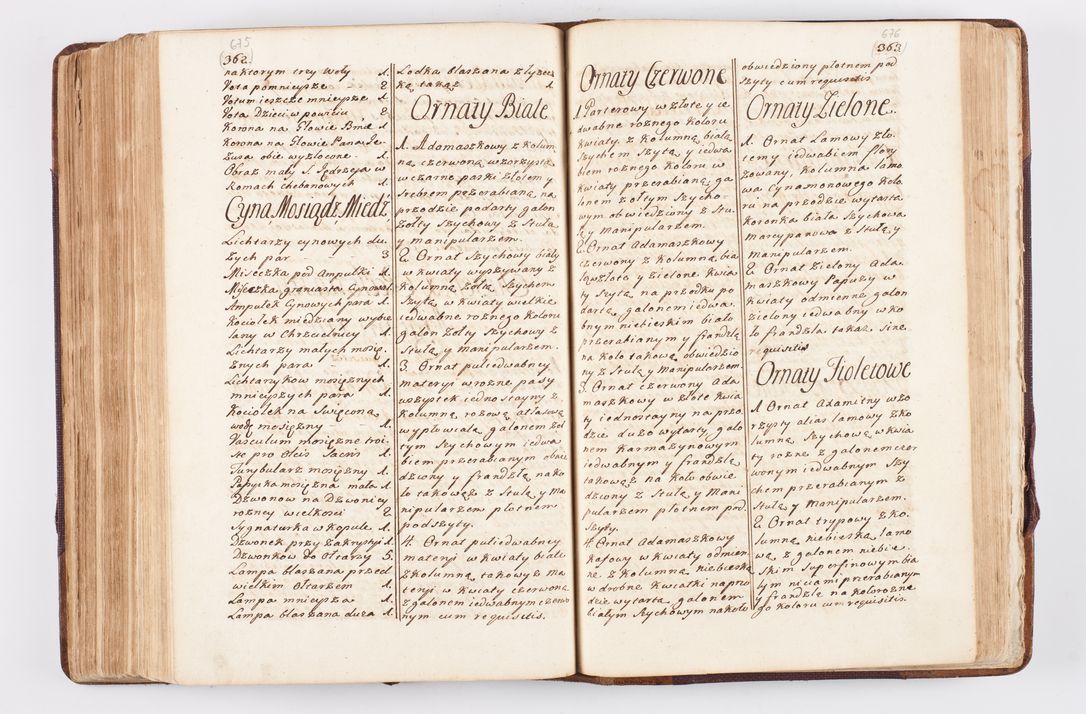 675
362.
na ktorym trzy Woły 1.
Vota pomnieysze 2
Votum ieszcze mnieysze 1.
Vota Dzieci w powiciu 2
Korona na Głowie Bmæ 1
Korona na Głowie Pana Je-
zusa obie wyzłocone 1.
Obraz mały S. Jędrzeja w
Ramach chebanowych 1.
Cyna, Mosiądz, Miedź
Lichtarzy cynowych du-
zych par 3
Miseczka pod Ampułki 1.
Miseczka graniasta Cynowa 1.
Ampułek Cynowych para 1.
Kociołek miedziany wybie
lany w Chrzcielnicy 1.
Lichtarzy małych mosię-
znych para 1.
Lichtarzykow mosięznych
mnieyszych para 1.
Kociołek na Swięconą
wodę mosięzny 1.
Vasculum mosięzne troi-
ste pro Oleis Sacris 1.
Turybularz mosięzny 1.
Papyska mosięzna mała 1.
Dzwonow na Dzwonicy
rozney wielkosci 2
Sygnaturka w Kopule 1.
Dzwonek przy Zakrystyi 1.
Dzwonkow do Ołtarzy 5.
Lampa blaszana przed
wielkim Ołtarzem 1.
Lampa mnieysza 1.
Lampa blaszana duza 1.
Lodka blaszana z łyzecz
ką taką 1
Ornaty Białe
1. Adamaszkowy z kolum
ną czerwoną wzorzystą
w czarne paski złotem y
srebrem przerabianą, na
przodzie podarty galon
zołty szychowy z stułą
y manipularzem.
2. Ornat szychowy biały
w kwiaty wyszywany z
kolumną zołtą szychem
szytą, w kwiaty wielkie
iedwabne roznego koloru
galon zołty szychowy z
stułą y manipularzem.
3. Ornat puliedwabney
materyi w rozne pasy
wszystek iednostayny z
kolumną rozową atłasową
wypłowiałą galonem zoł
tym szychowym iedwa
biem przerabianym obwie
dziony y frandzlą na ko
ło takowąz z stułą y ma
nipularzem płotnem
podszyty.
4. Ornat puliedwabney
materyi w kwiaty białe
z kolumną takowąz ma
teryi w kwiaty czerwoną
z galonem iedwabnym czerwo
nym cum requisitis.
676
363
Ornaty Czerwone
1 Parterowy w złote y ie
dwabne roznego koloru
kwiaty, z kolumną białą
szychem szytą, y iedwa
biem roznego koloru w
kwiaty przerabianą, ga
lonem zołtym szycho-
wym obwiedziony z stu
łą y manipularzem.
2. Ornat Adamaszkowy
czerwony z kolumną bia
łą w złote y zielone kwia
ty szytą, na przodku po
dartą, galonem iedwa-
bnym niebieskim biało
przerabianym y frandzlą
na koło takową obwiedzio
ny z stułą y manipularzem.
3. Ornat czerwony Ada
maszkowy w złote kwia
ty iednostayny na przo
dzie duzo wytarty galo
nem karmazynowym
iedwabnym y frandzlą
takową z na koło obwie
dziony z stułą y mani
pularzem płotnem pod-
szyty.
4. Ornat Adamaszkowy
kafowy w kwiaty odmien
ne z kolumną niebieską
w drobne kwiatki na prze
dzie wytartą galonem
białym szychowym na koło
obwiedziony płotnem pod
szyty cum requisitis
Ornaty Zielone.
1. Ornat Lamowy zło-
temy iedwabiem flory
zowany, kolumna lamo
wa cynamonowego kolo
ru na przodzie wytarta
koronka biała szychowa
marcypanowa z stułą y
manipularzem.
2. Ornat zielony Ada
maszkowy Papuzy w
kwiaty odmienne galon
zielony iedwabny w ko
ło frandzla takaz sine
requisitis
Ornaty Fioletowe
1 Ornat Adamitny wzo
rzysty alias lamowy z ko
lumną szychową w kwia
ty rozne z galonem czer
wonym iedwabnym szy
chem przerabianym z
stułą y manipularzem.
2. Ornat trypowy z ko
lumną niebieską lamo
wą, z galonem niebie-
skim superfinowym bia
łym niciami przerabianym
y frandzlą na koło rozne
go koloru cum requisitis.